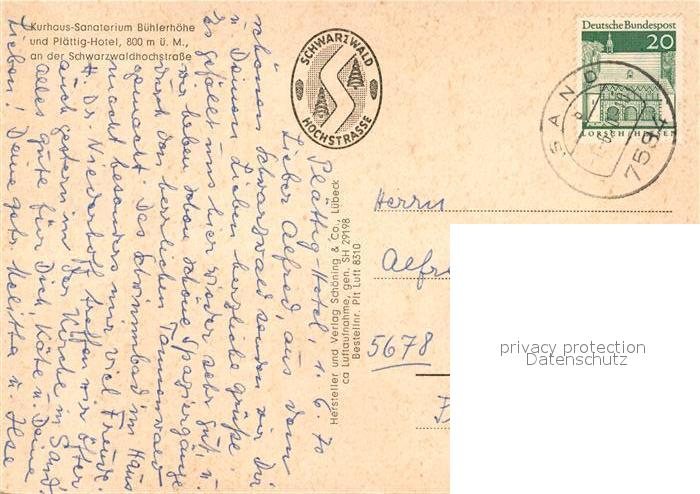 Kurhaus-Sanatorium Bühlerhöhe
und Plättig-Hotel, 800 m ü. M.,
an der Schwarzwaldhochstraße
SCHWARZWALD
HOCHSTRASSE
Deutsche Bundespost
20
LORSCH/HESSEN
SAND
7594
Plättig-Hotel, 1. 6. 70
Lieber Alfred, aus dem
schönen Schwarzwald senden wir Dir
u. Deinen Lieben herzliche Grüße.
Es gefällt uns hier wieder sehr gut, u.
wir haben schon schöne Spaziergänge
durch den herrlichen Tannenwald
gemacht. Das Schwimmbad im Haus
macht besonders mir viel Freude.
H. Dr. Niederhoff treffen wir öfter
auch gestern in der Kirche in Sand.
Alles gute für Dich, Käte u. Deine
Lieben! Deine getr. Melitta u. Ilse
Hersteller und Verlag Schöning & Co., Lübeck
ca Luftaufnahme, gen. SH 29198
Bestellnr. Plt Luft 8310
Herrn
Alfre
5678
privacy protection
Datenschutz